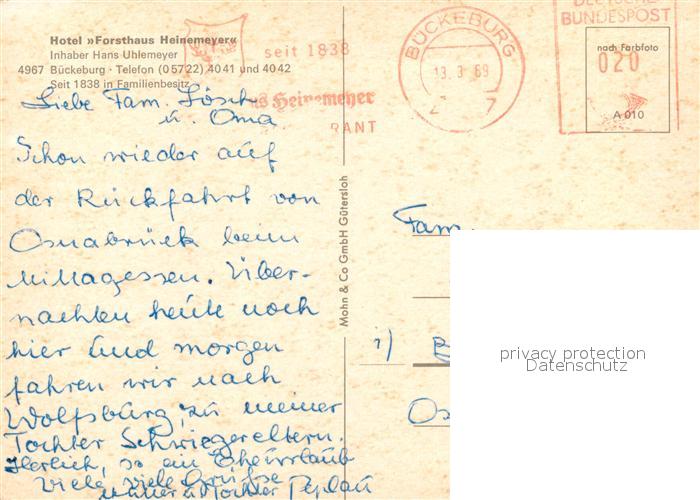 Hotel »Forsthaus Heinemeyer«
Inhaber Hans Uhlemeyer
4967 Bückeburg · Telefon (05722) 4041 und 4042
Seit 1838 in Familienbesitz
seit 1838
Heinemeyer
RANT
BÜCKEBURG
13.3.69
DEUTSCHE
BUNDESPOST
nach Farbfoto
020
A 010
Liebe Fam. Lösch
u. Oma
Schon wieder auf
der Rückfahrt von
Osnabrück beim
Mittagessen. Über-
nachten heute noch
hier und morgen
fahren wir nach
Wolfsburg zu meiner
Tochter Schwiegereltern.
Herrlich, so ein Eheurlaub
Viele, viele Grüße
Mutter u. Tochter
Mohn & Co GmbH Gütersloh
Fam.
Os
privacy protection
Datenschutz